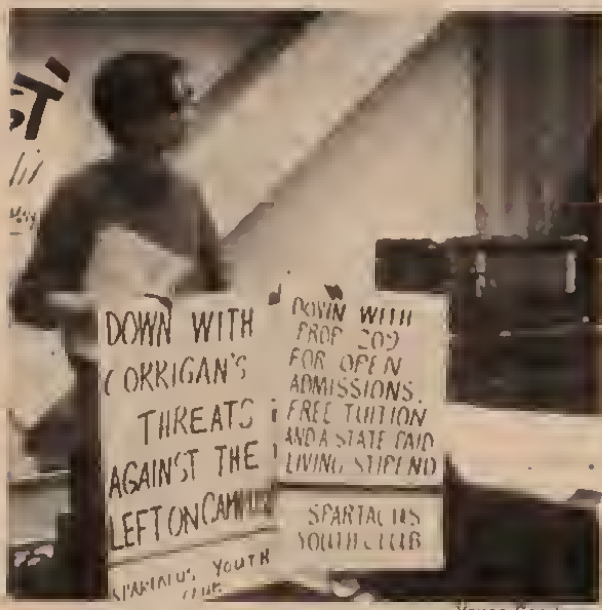 ST
DOWN WITH
CORRIGAN'S
THREATS
AGAINST THE
LEFT ON CAMPUS
SPARTACUS YOUTH
CLUB
DOWN WITH
PROP 209
FOR OPEN
ADMISSIONS,
FREE TUITION
AND A STATE PAID
LIVING STIPEND
SPARTACUS
YOUTH CLUB
Young